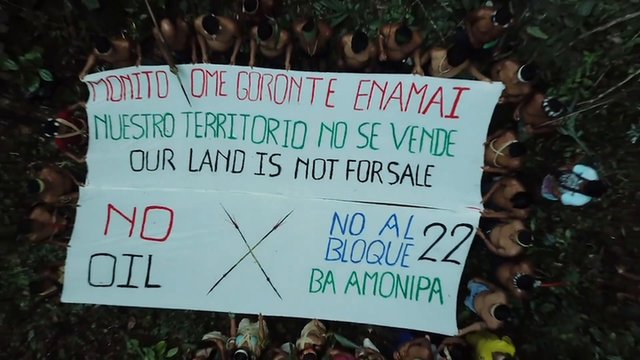 MONITO OME GORONTE ENAMAI
NUESTRO TERRITORIO NO SE VENDE
OUR LAND IS NOT FOR SALE
NO OIL
NO AL BLOQUE 22
BA AMONIPA